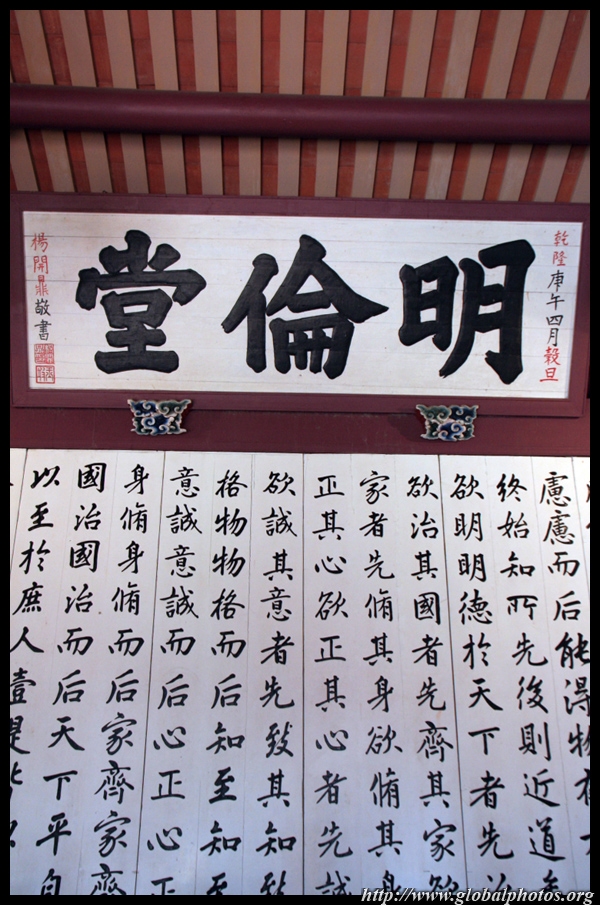 乾隆庚午四月穀旦
明倫堂
楊開鼎敬書
慮慮而后能得物有
終始知所先後則近道矣
欲明明德於天下者先治
欲治其國者先齊其家欲
家者先脩其身欲脩其身
正其心欲正其心者先誠
欲誠其意者先致其知致
格物物格而后知至知至
意誠意誠而后心正心正
身脩身脩而后家齊家齊
國治國治而后天下平自
以至於庶人壹是皆以
http://www.globalphotos.org